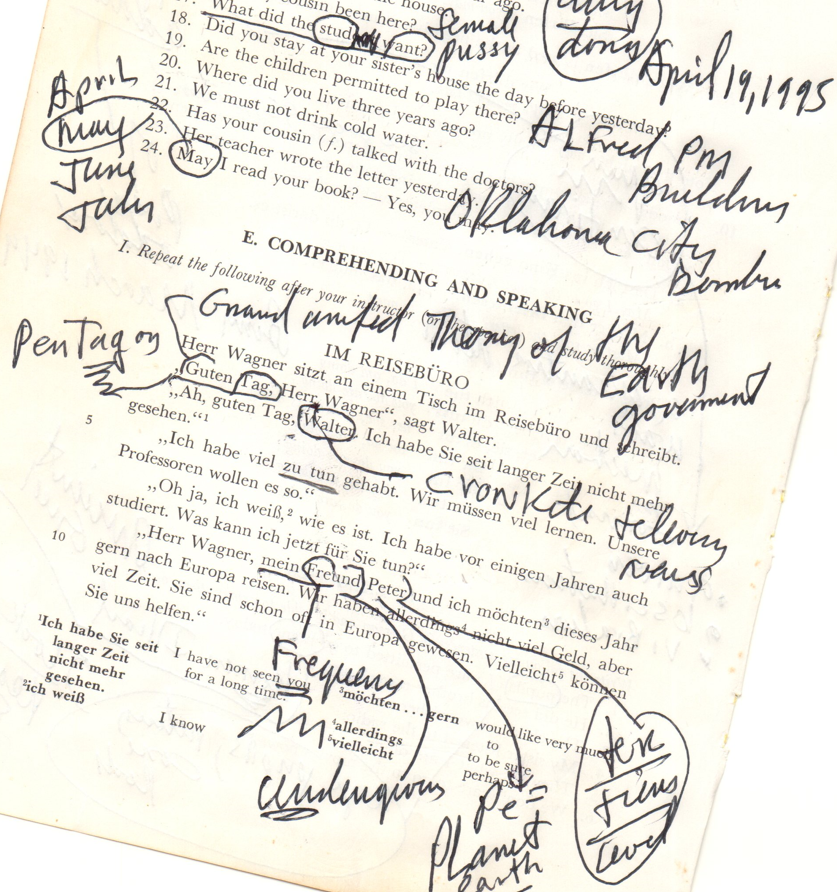 cousin been here?
What did the student want?
18. Did you stay at your sister's house the day before yesterday?
19. Are the children permitted to play there?
20. Where did you live three years ago?
21. We must not drink cold water.
22. Has your cousin (f.) talked with the doctors?
23. Her teacher wrote the letter yesterday.
24. May I read your book? — Yes, you may.
female
pussy
April 19, 1995
April
may
June
July
ALFred
Building
Oklahoma City
E. COMPREHENDING AND SPEAKING
I. Repeat the following after your instructor and study thoroughly
Grand unified Theory of
Earth
goverment
PenTagon
IM REISEBÜRO
Herr Wagner sitzt an einem Tisch im Reisebüro und schreibt.
„Guten Tag, Herr Wagner“, sagt Walter.
„Ah, guten Tag, Walter. Ich habe Sie seit langer Zeit nicht mehr
5 gesehen.“¹
„Ich habe viel zu tun gehabt. Wir müssen viel lernen. Unsere
Professoren wollen es so.“
CronKite
news
„Oh ja, ich weiß,² wie es ist. Ich habe vor einigen Jahren auch
studiert. Was kann ich jetzt für Sie tun?“
10 „Herr Wagner, mein Freund Peter und ich möchten³ dieses Jahr
gern nach Europa reisen. Wir haben allerdings⁴ nicht viel Geld, aber
viel Zeit. Sie sind schon oft in Europa gewesen. Vielleicht⁵ können
Sie uns helfen.“
¹Ich habe Sie seit
langer Zeit
nicht mehr
gesehen.
I have not seen you
for a long time.
²ich weiß
I know
³möchten . . . gern
would like very much
to
⁴allerdings
to be sure
⁵vielleicht
perhaps
Frequency
Pe =
Planet
earth